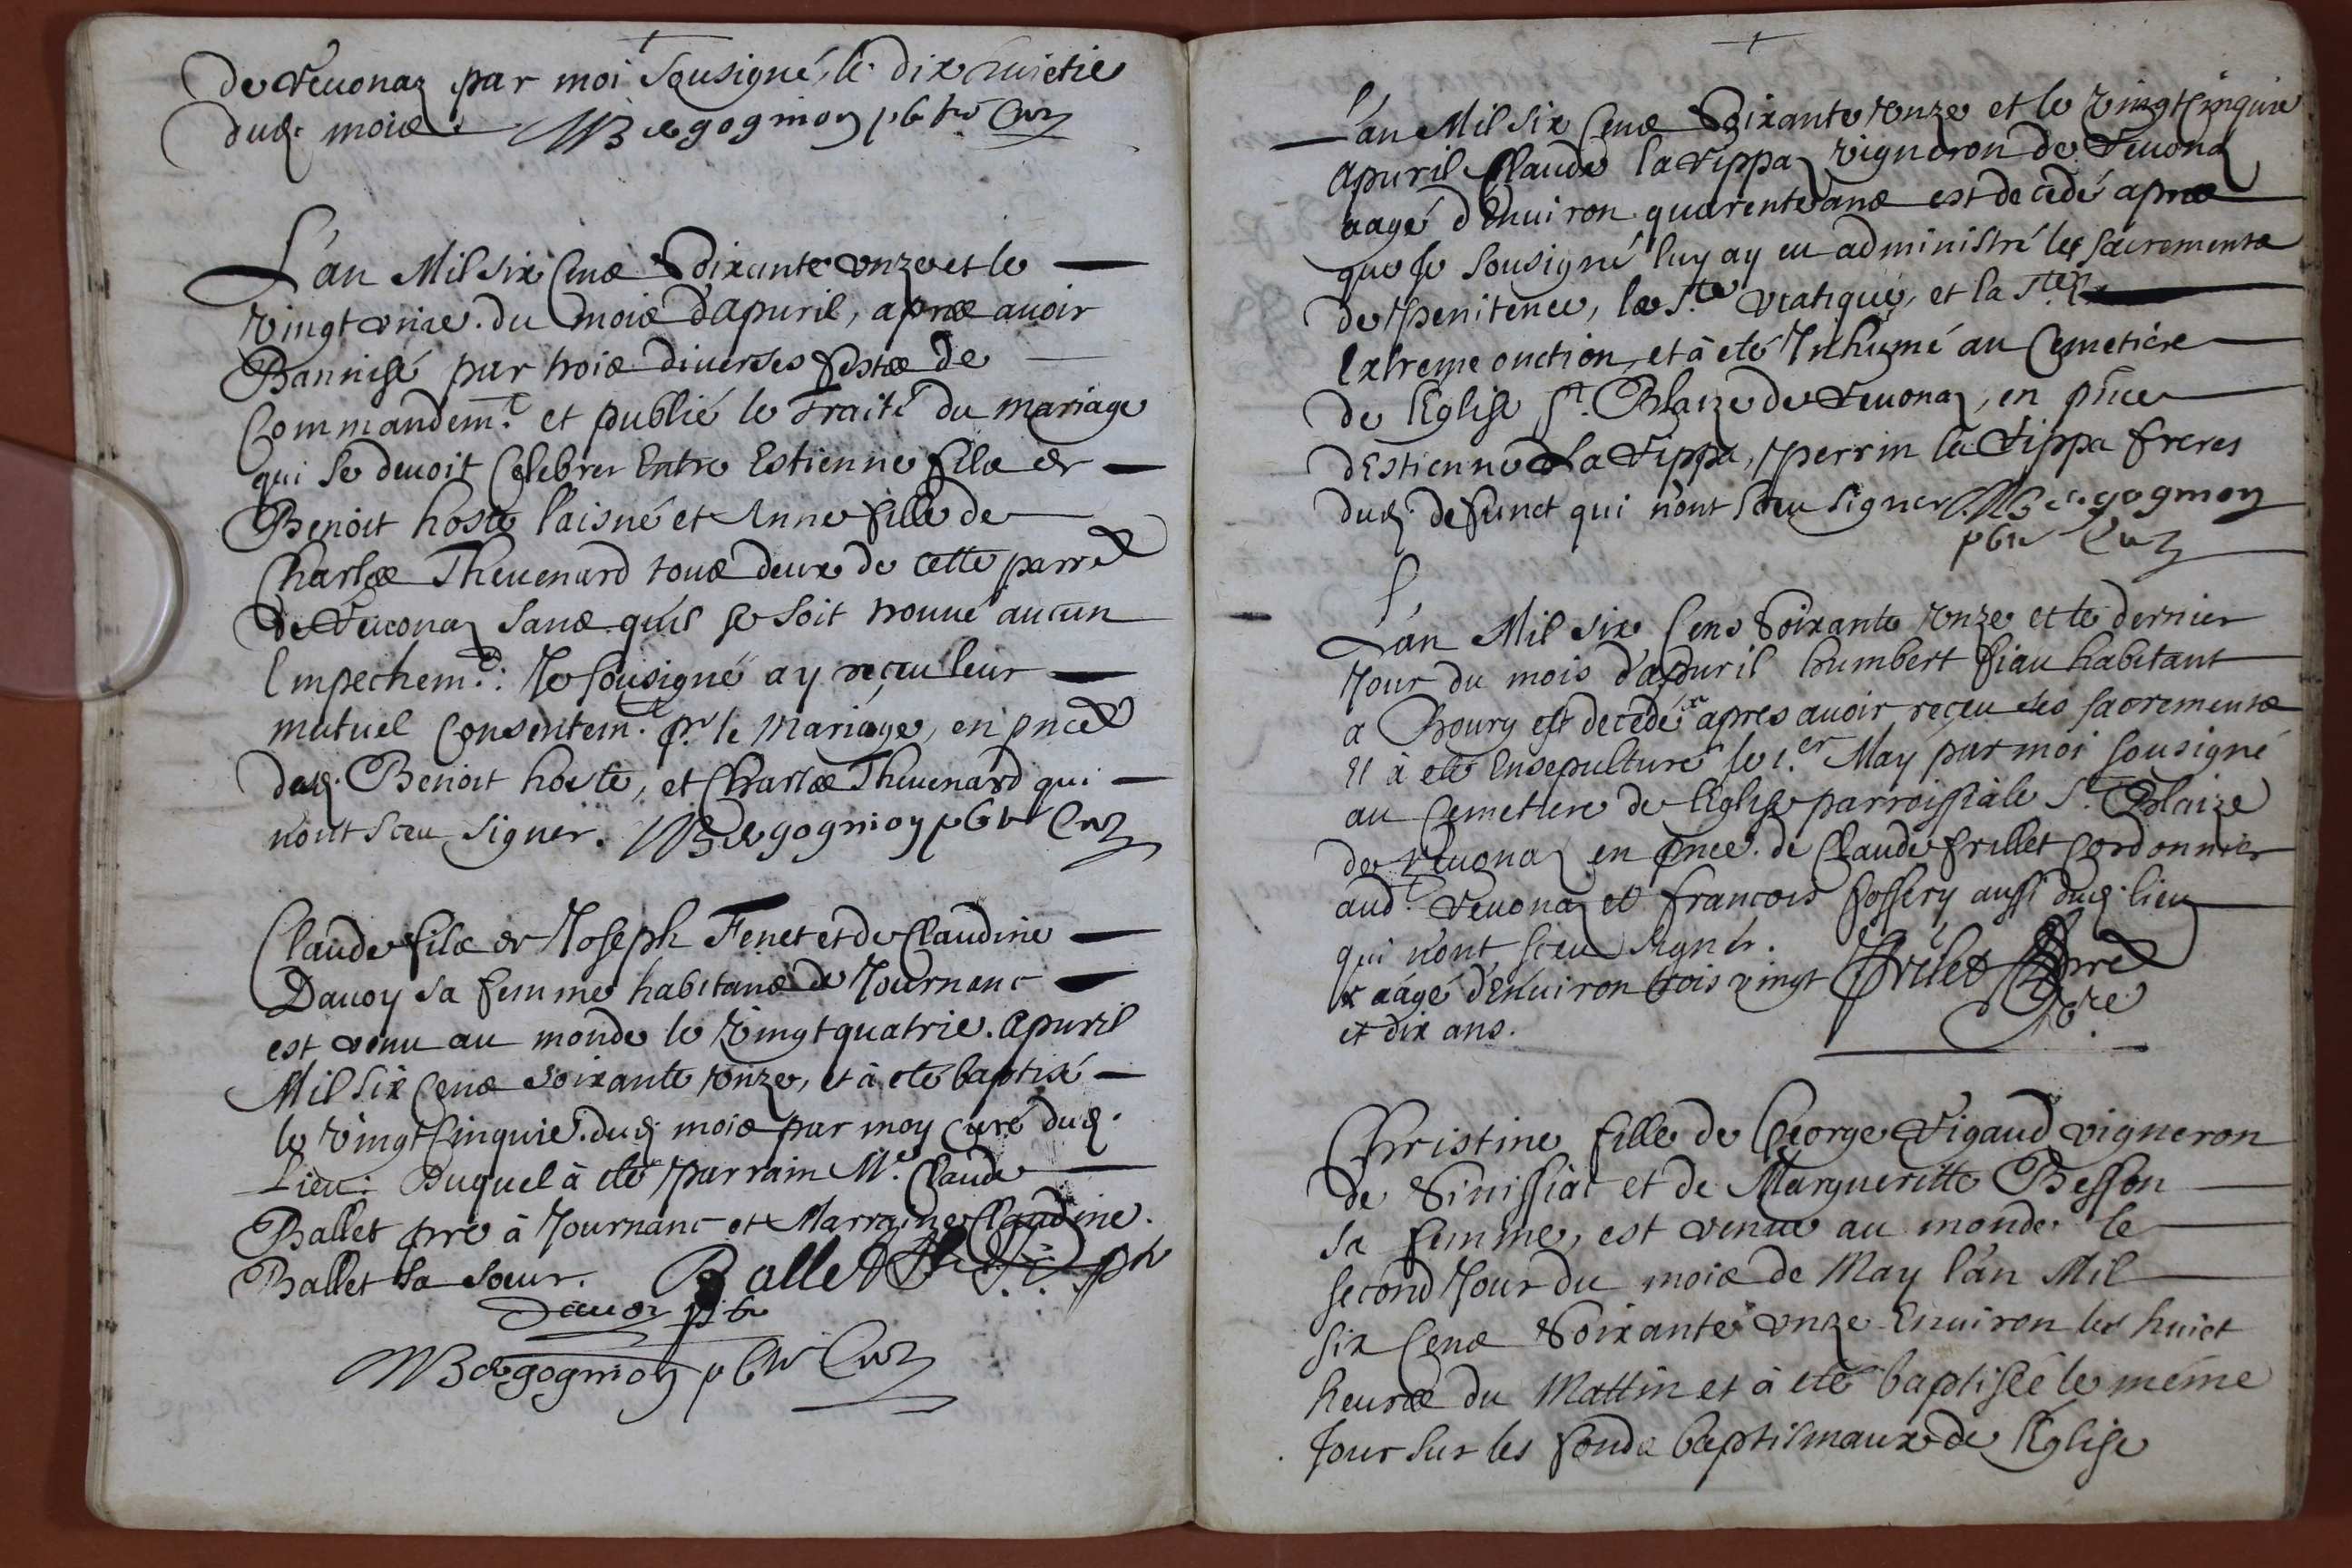 de Reuonaz par moi sousigné, le dix huictie
dud. moie. MBergogmoy pbtre Curé
L'an Mil six Cens Soixante vnze et le
vingt vnie. du mois d'apuril, apres auoir
Bannisé par trois diuerses festes de
Commandem.t et publié le traité du mariage
qui se deuoit Celebrer Entre Estienne fils de
Benoit hoste l'aisné et Anne fille de
Charles Theuenard tous deux de cette parr.e
de Reuonaz sans quil se soit trouué aucun
Empechem.t: Je sousigné ay reçeu leur
mutuel Consentem.t pr. le Mariage, en pnce
desd. Benoit hoste, et Charles Theuenard qui
n'ont sceu signer. MBergogmoy pbtre Curé
Claude fils de Joseph Fenet et de Claudine
Dauoy sa femme habitans de Journans
est venu au monde le vingt quatrie. apuril
Mil six Cens soixante vnze, et à eté baptisé
le vingt Cinquie. dud. mois par moy Curé dud.
Lieu: Duquel à eté parrain M.e Claude
Ballet pre à Journans et Marraine Claudine
Ballet sa soeur. Ballet
MBergogmoy pbtre Curé
L'an Mil six Cens Soixante vnze et le vingt Cinquie
apuril Claude la Vippaz vigneron de Reuonaz
aagé d'Enuiron quarente ans est decedé apres
que Je sousigné luy ay eu administré les sacremens
de Penitence, le St.e viatique, et la Ste.
Extreme onction, et à eté Inhumé au Cemetiere
de l'Eglise St. Blaize de Reuonaz, en pnce
d'Estienne La Vippa, Perrin la Vippa freres
dud. defunct qui n'ont sceu signer MBergogmoy
pbtre Curé
L'an Mil six Cens Soixante vnze et le dernier
Jour du mois d'apuril humbert fiau habitant
a Bourg est decedé x apres auoir reçeu les sacremens
Il à eté Ensepulturé le 1.er May par moi sousigné
au Cemetiere de l'Eglise parroissiale St. Blaize
de Reuonaz en pnce. de Claude frillet Cordonnier
aud.t Reuonaz et francois fossery aussi dud. lieu
qui n'ont sceu signer.
x aagé d'Enuiron trois vingt
et dix ans.
Christine fille de George Rigaud vigneron
de Sinissiat et de Margueritte Besson
sa femme, est venue au monde le
second Jour du mois de May l'an Mil
six Cens Soixante vnze Enuiron les huict
heures du Mattin et à eté baptisée le méme
Jour sur les fonds baptismaux de l'Eglise